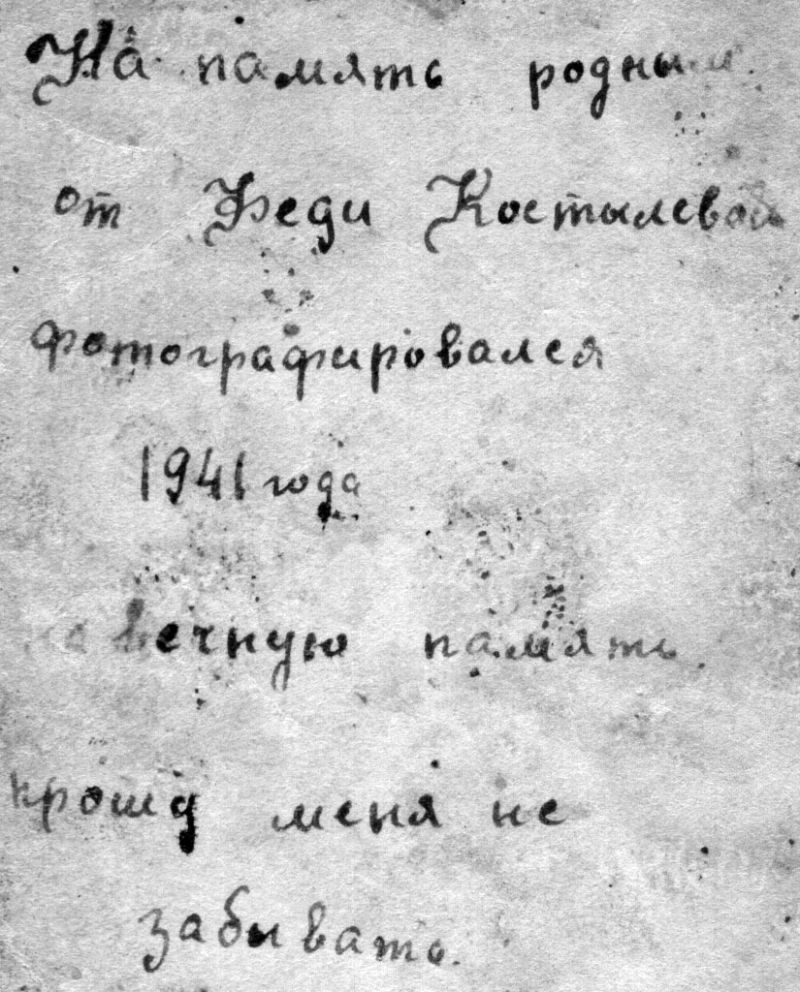 На память родным.
от Феди Костылевой
фотографировался
1941 года
на вечную память.
прошу меня не
забывать.